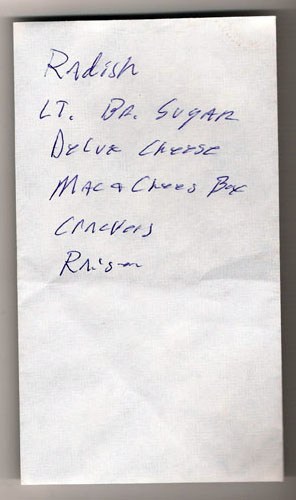 Radish
LT. BR. SUGAR
Delux Cheese
Mac & Chees Box
Crackers
Raison